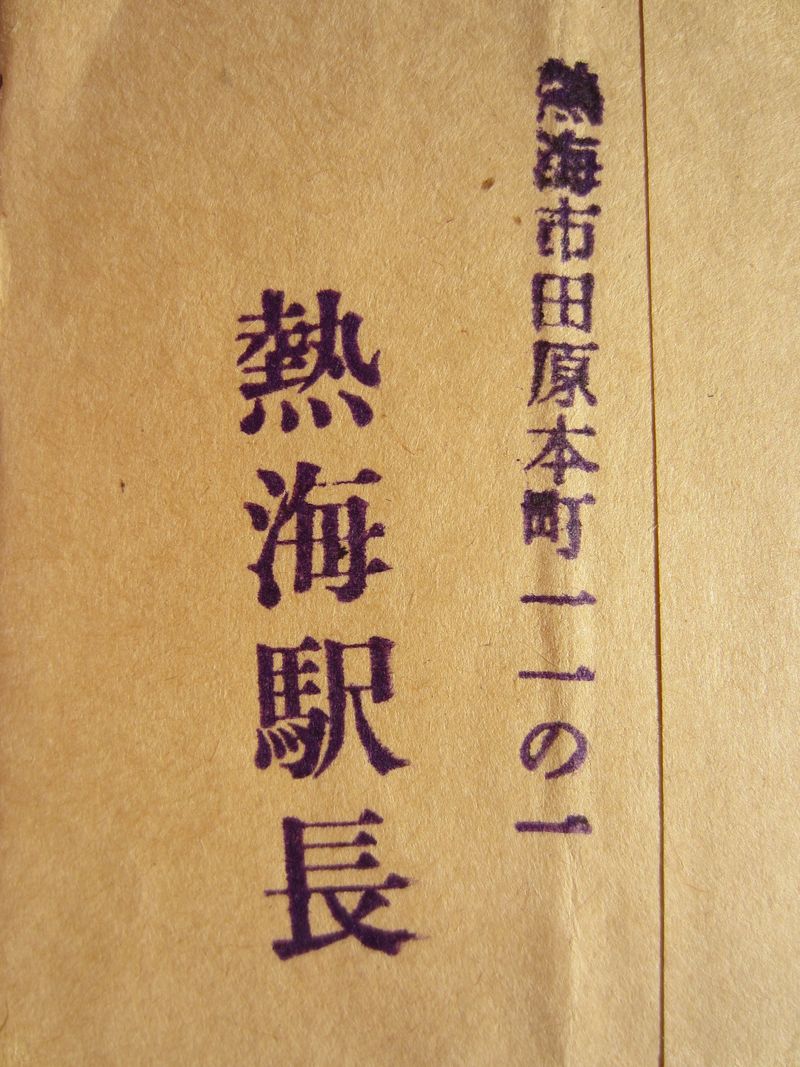 熱海市田原本町一一の一
熱海駅長